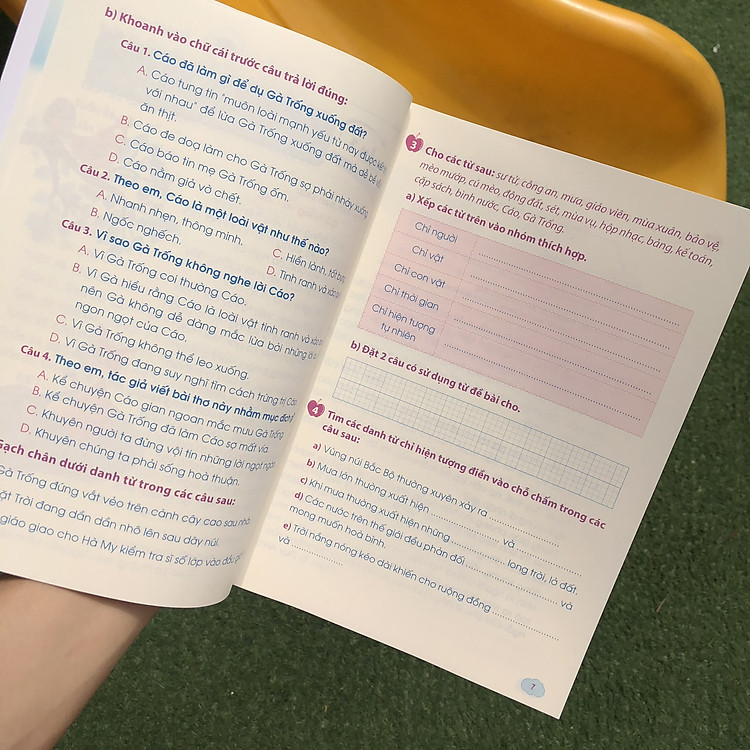 b) Khoanh vào chữ cái trước câu trả lời đúng:
Câu 1. Cáo đã làm gì để dụ Gà Trống xuống đất?
A. Cáo tung tin "muôn loài mạnh yếu từ nay được kết
với nhau" để lừa Gà Trống xuống đất mà dễ bề
ăn thịt.
B. Cáo đe doạ làm cho Gà Trống sợ phải nhảy xuống
C. Cáo báo tin mẹ Gà Trống ốm.
D. Cáo nằm giả vờ chết.
Câu 2. Theo em, Cáo là một loài vật như thế nào?
A. Nhanh nhẹn, thông minh. C. Hiền lành, tốt
B. Ngốc nghếch. D. Tinh ranh và xảo
Câu 3. Vì sao Gà Trống không nghe lời Cáo?
A. Vì Gà Trống coi thường Cáo.
B. Vì Gà hiểu rằng Cáo là loài vật tinh ranh và xảo
nên Gà không dễ dàng mắc lừa bởi những lời
ngon ngọt của Cáo.
C. Vì Gà Trống không thể leo xuống.
D. Vì Gà Trống đang suy nghĩ tìm cách trừng trị Cáo
Câu 4. Theo em, tác giả viết bài thơ này nhằm mục đích
A. Kể chuyện Cáo gian ngoan mắc mưu Gà Trống
B. Kể chuyện Gà Trống đã làm Cáo sợ mất vía.
C. Khuyên người ta đừng vội tin những lời ngọt ngào.
D. Khuyên chúng ta phải sống hoà thuận.
Gạch chân dưới danh từ trong các câu sau:
Gà Trống đứng vắt vẻo trên cành cây cao sau nhà.
ặt Trời đang dần dần nhô lên sau dãy núi.
giáo giao cho Hà My kiểm tra sĩ số lớp vào đầu
3 Cho các từ sau: sư tử, công an, mưa, giáo viên, mùa xuân, bảo vệ,
mèo mướp, cú mèo, động đất, sét, mùa vụ, hộp nhạc, bảng, kế toán,
cặp sách, bình nước, Cáo, Gà Trống.
a) Xếp các từ trên vào nhóm thích hợp.
Chỉ người
Chỉ vật
Chỉ con vật
Chỉ thời gian
Chỉ hiện tượng
tự nhiên
b) Đặt 2 câu có sử dụng từ đề bài cho.
4 Tìm các danh từ chỉ hiện tượng điền vào chỗ chấm trong các
câu sau:
a) Vùng núi Bắc Bộ thường xuyên xảy ra .................... và ....................
b) Mưa lớn thường xuất hiện ....................
c) Khi mưa thường xuất hiện những .................... long trời, lở đất.
d) Các nước trên thế giới đều phản đối .................... và
mong muốn hoà bình.
e) Trời nắng nóng kéo dài khiến cho ruộng đồng ....................
và ....................
7